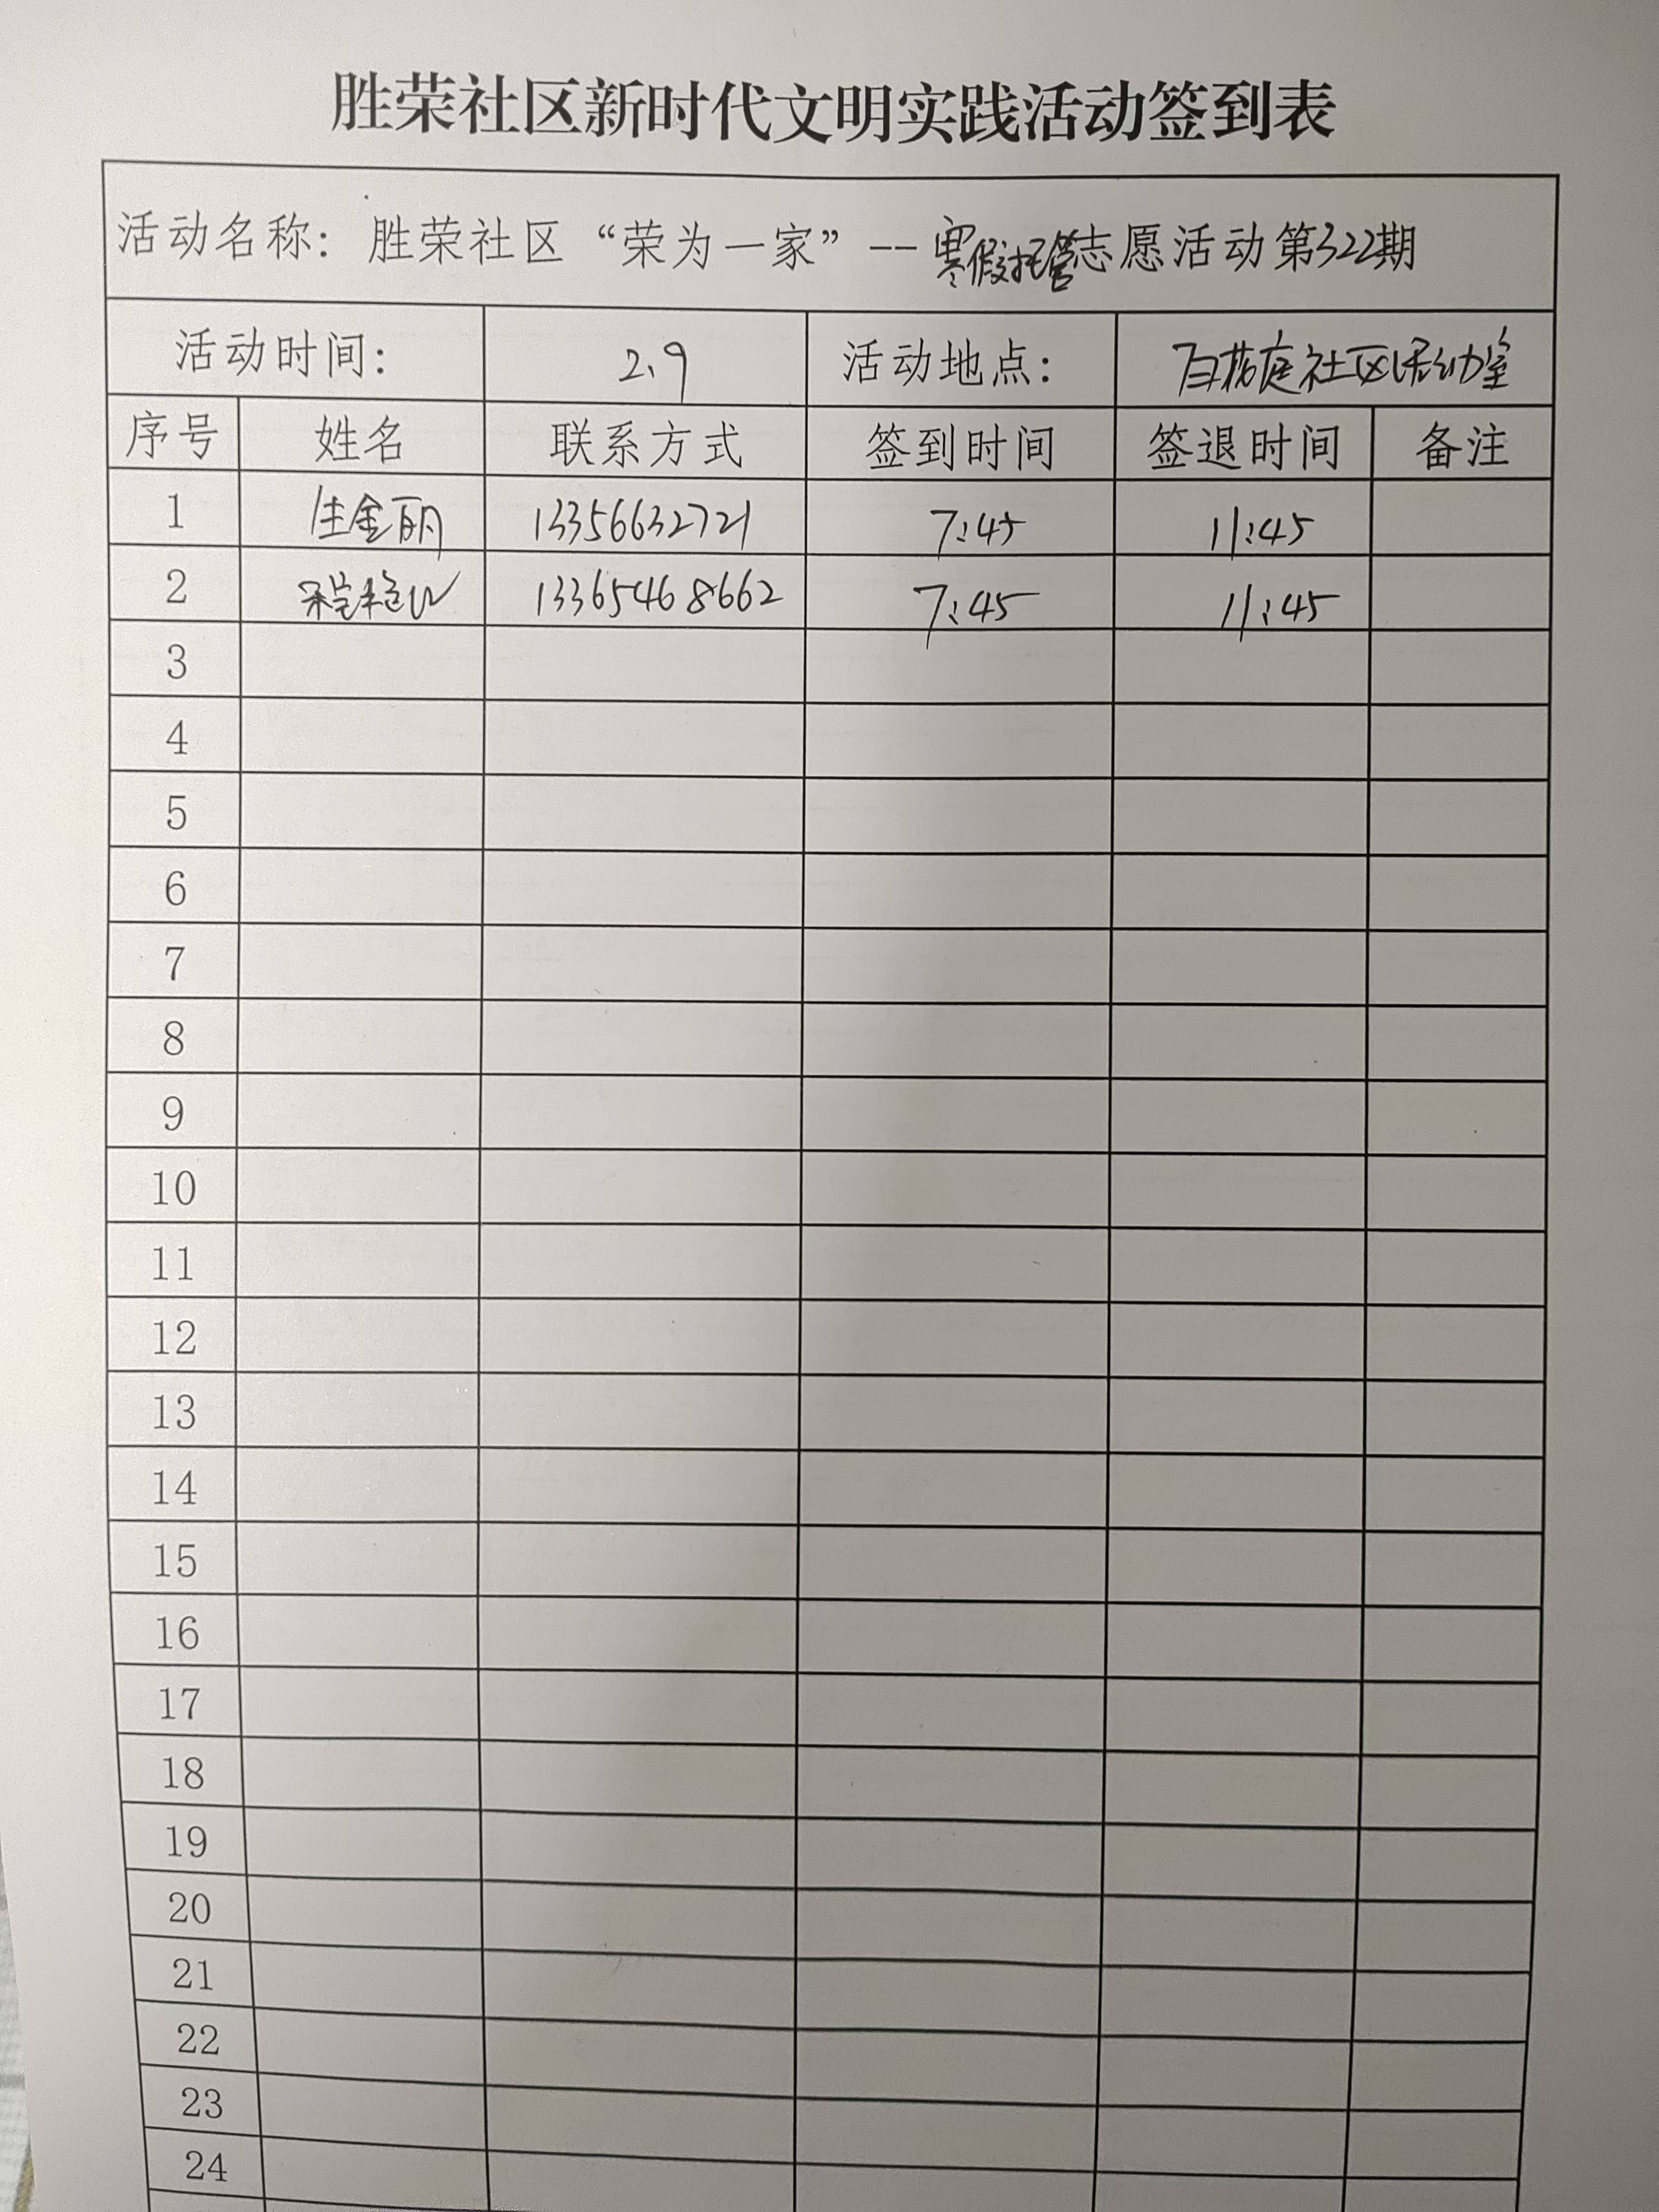 胜荣社区新时代文明实践活动签到表
活动名称：胜荣社区“荣为一家”--寒假托管志愿活动第322期
活动时间： 2.9 活动地点： 社区活动室
序号 姓名 联系方式 签到时间 签退时间 备注
1 金丽 13356632721 7:45 11:45
2 13365468662 7:45 11:45
3
4
5
6
7
8
9
10
11
12
13
14
15
16
17
18
19
20
21
22
23
24